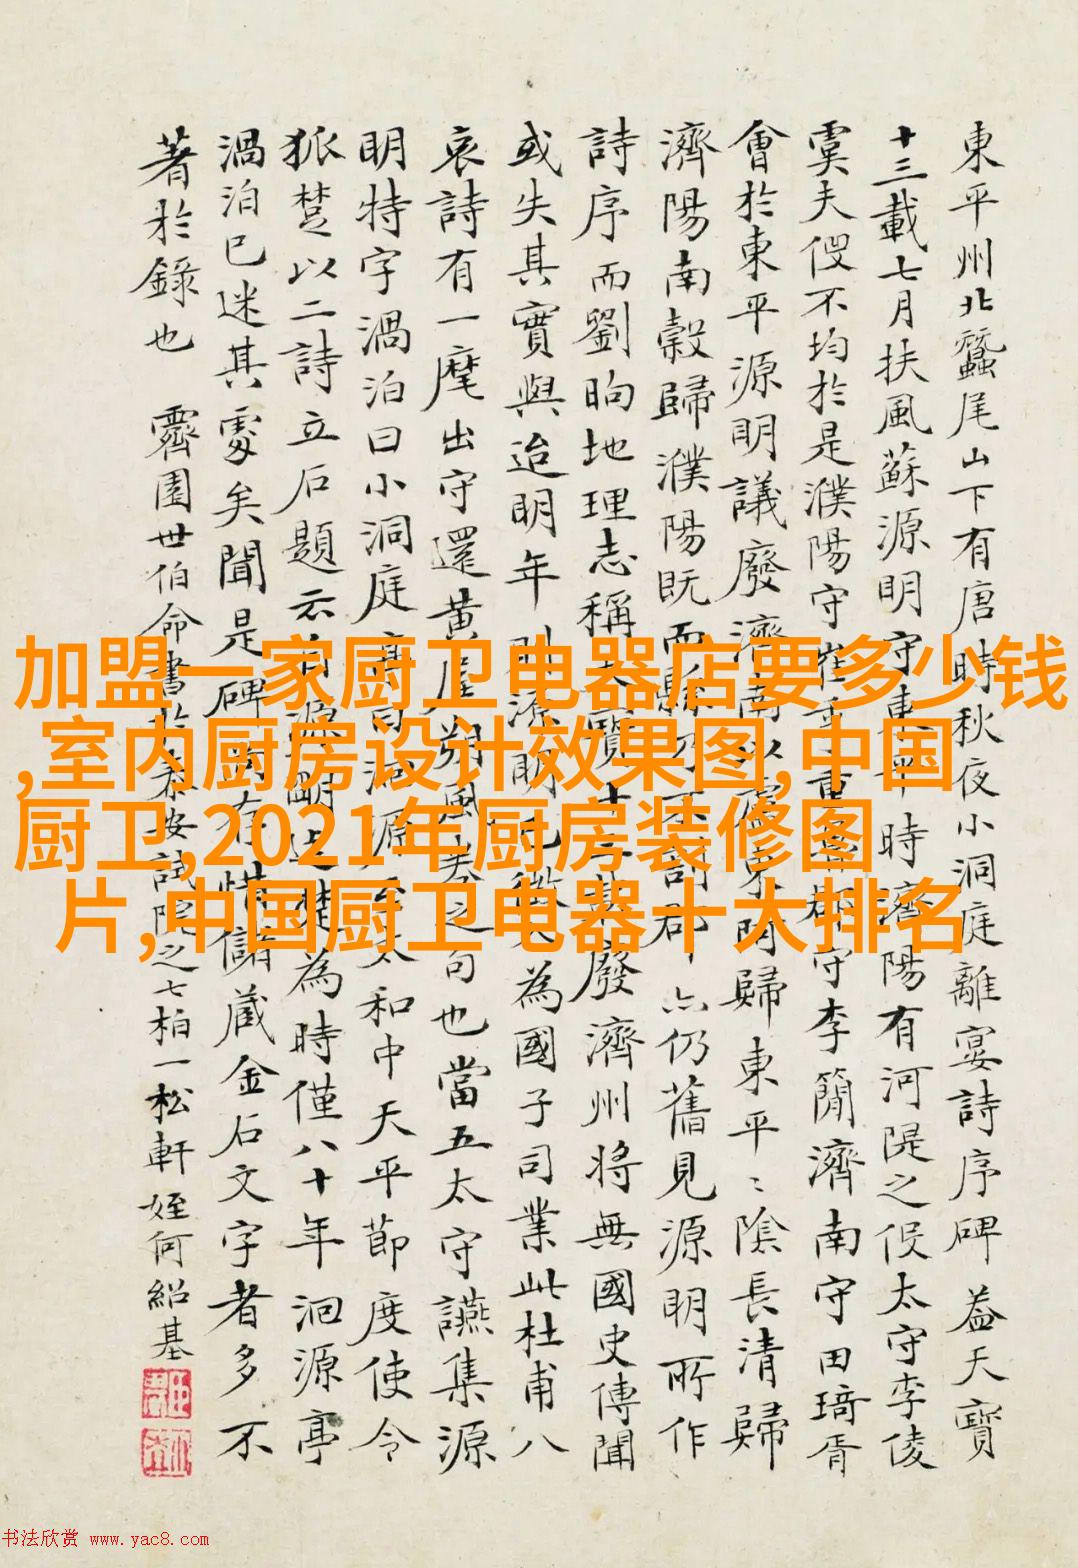 東平州北蠶尾山下有唐時秋夜小洞庭離宴詩序碑 蓋天寶
十三載七月扶風蘇源明守東平時濟陽有河隄之役太守李倰
虞夫役不均於是濮陽守崔季重魯郡守李簡濟南守田琦胥
會於東平源明議廢濟南以歸東平〻陰長清歸
濟陽南穀歸濮陽既而縣郡亦仍舊見源明所作
詩序而劉昫地理志稱天寶十三載廢濟州將無國史傳聞
或失其實與迨明年則源明已徵為國子司業此杜甫八
哀詩有一麾出守還黃屋朔風卷之句也當五太守讌集源
明特字渦泊曰小洞庭亭洄源太和中天平節度使令
狐楚以二詩立石題云源明楚為時僅八十年洄源亭
渦泊已迷其處矣聞是碑尚存惜儲藏金石文字者多不
著於錄也 霽園世伯命書於安試院之七柏一松軒 姪何紹基
加盟一家厨卫电器店要多少钱
,室内厨房设计效果图,中国
厨卫,2021年厨房装修图
片,中国厨卫电器十大排名
书法欣赏 www.yac8.com